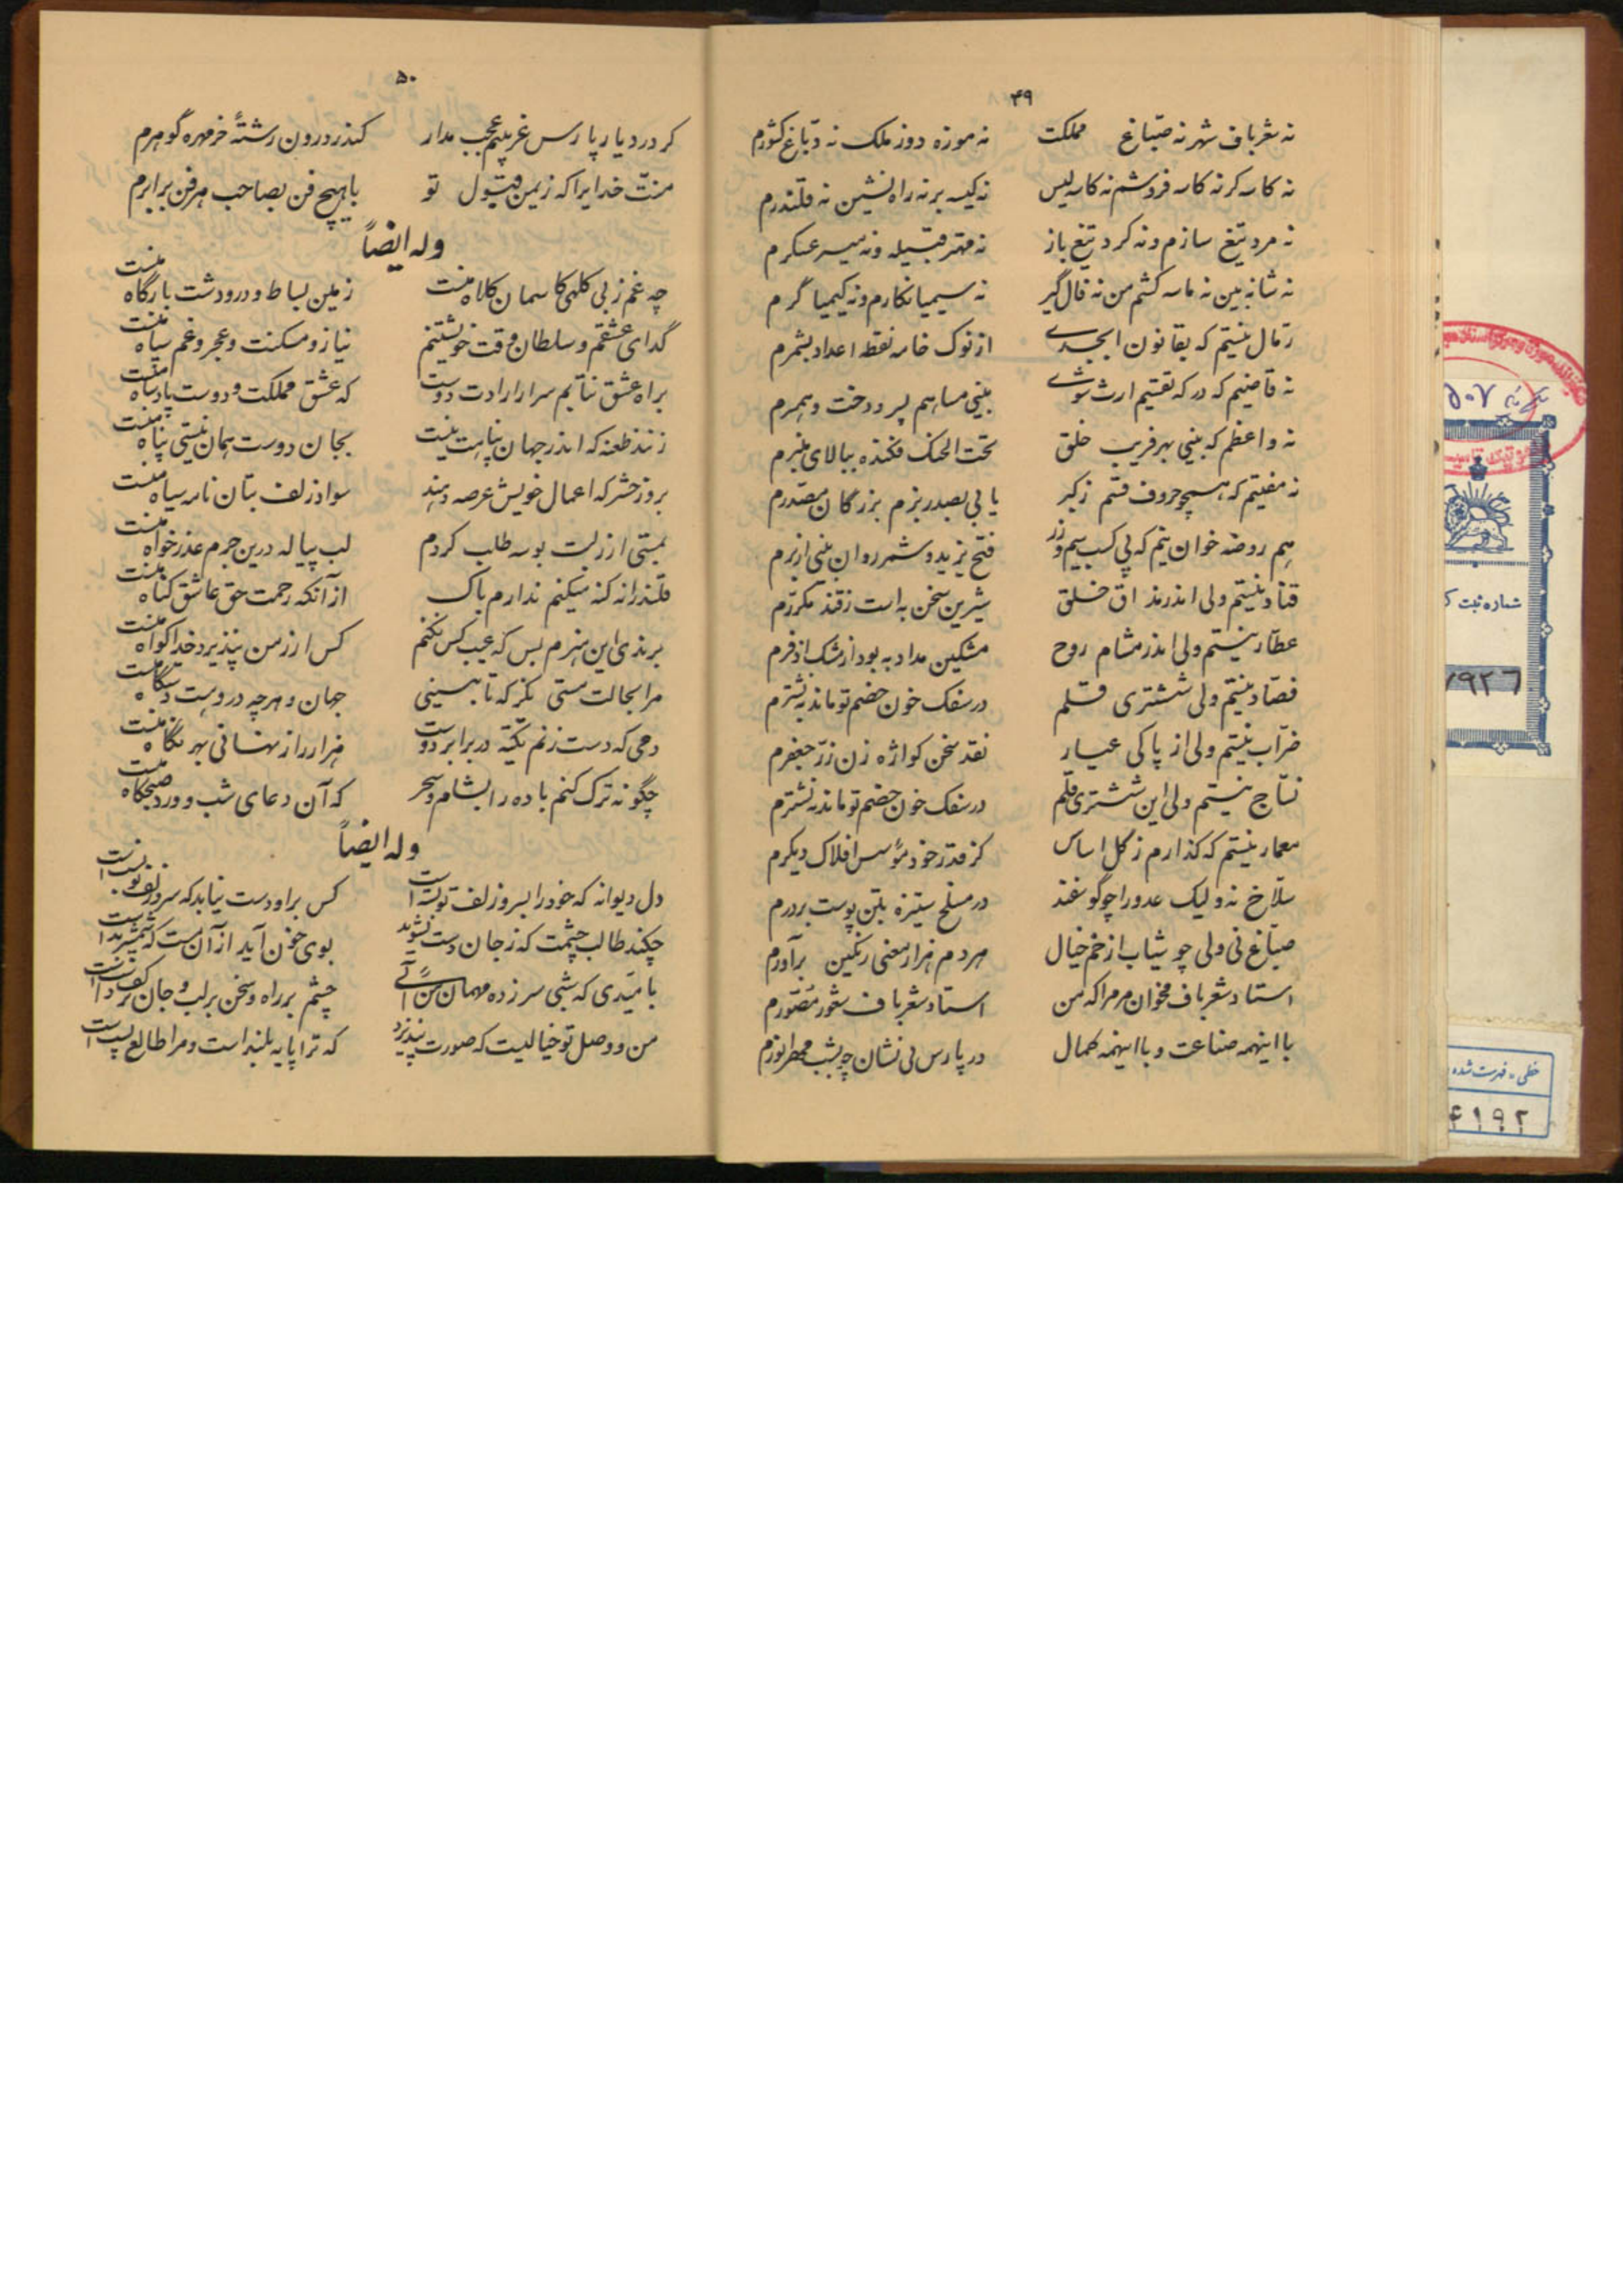 ۴۹
نه شعرباف شهر نه صبّاغ مملکت نه موزه دوز ملک نه دبّاغ کشورم
نه کاسه کر نه کاسه فروشم نه کاسه لیس نه کیسه بر نه راه نشین نه قلندرم
نه مرد تیغ سازم و نه کرد تیغ باز نه مهتر قبیله و نه میر عسکرم
نه شانه بین نه ماسه کشم من نه فال گیر نه سیمیا نکارم و نه کیمیا گرم
رمّال نیستم که بقانون ابجدی از نوک خامه نقطه اعداد بشمرم
نه قاضیم که در که تقسیم ارث شوی بینی مساهم پسر و دخت و همسرم
نه واعظم که بینی بهر فریب خلق تحت الحنک فکنده ببالای منبرم
نه مفتیم که هیچ حروف قسم زکبر یابی بصدر بزم بزرگان مصدّرم
هم روضه خوان نیم که پی کسب سیم و زر فتح یزید و شمر روان بینی از برم
قنّاد نیستم ولی اندر مذاق خلق شیرین سخن به است ز قند مکرّرم
عطّار نیستم ولی اندر مشام روح مشکین مداد به بود از مشک اذفرم
فصّاد نیستم ولی ششتری قلم در سفک خون خصم تو ماند به نشترم
ضرّاب نیستم ولی از پاکی عیار نقد سخن کواژه زن زرّ جعفرم
نسّاج نیستم ولی این ششتری قلم در سفک خون خصم تو ماند نشترم
معمار نیستم که کذارم ز گل اساس کز قدر خود مؤسس افلاک دیکرم
سلّاخ نه ولیک عدو را چو گوسفند در مسلخ ستیزه بتن پوست بردرم
صبّاغ نی ولی چو شاب از خم خیال هر دم هزار معنی رنکین برآورم
استاد شعرباف مخوان مر مرا که من استاد شعرباف شعور مصوّرم
با اینهمه صناعت و با اینهمه کمال در پارس بی نشان چو بشب مهر انورم
۵۰
کر در دیار پارس غریبم عجب مدار کندر درون رشتهٔ خرمهره گوهرم
منّت خدایرا که زیمن قبول تو با هیچ فن بصاحب هر فن برابرم
وله ایضاً
چه غم ز بی کلهی کاسمان کلاه منست زمین بساط و در و دشت بارگاه منست
گدای عشقم و سلطان وقت خویشتنم نیاز و مسکنت و عجز و غم سپاه منست
براه عشق نتابم سر از ارادت دوست که عشق مملکت و دوست پادشاه منست
زنند طعنه که اندر جهان پناهت نیست بجان دوست همان نیستی پناه منست
بروز حشر که اعمال خویش عرصه دهند سواد زلف بتان نامه سیاه منست
بمستی ار ز لبت بوسه طلب کردم لب پیاله درین جرم عذر خواه منست
قلندرانه کنه میکنم ندارم باک از آنکه رحمت حق عاشق کناه منست
برندی این هنرم بس که عیب کس نکنم کس ار ز من نپذیرد خدا کواه منست
مرا بحالت مستی نکر که تا بینی جهان و هر چه دروست دستگاه منست
دمی که دست زنم تکیه در برابر دوست هزار راز نهانی بهر نگاه منست
چگونه ترک کنم باده را بشام و سحر که آن دعای شب و ورد صبحگاه منست
وله ایضاً
دل دیوانه که خود را بسر زلف تو بسته است کس بر او دست نیابد که سر زلف تو بست است
چکند طالب چشمت که ز جان دست نشوید بوی خون آید از آن مست که شمشیر بدست است
بامیدی که شبی سر زده مهمان من آئی چشم بر راه و سخن بر لب و جان بر کف دست است
من و وصل تو خیالیست که صورت نپذیرد که ترا پایه بلند است و مرا طالع پست است
۵۰۷
شماره ثبت
۷۹۲۶
خطی - فهرست شده
۴۱۹۲